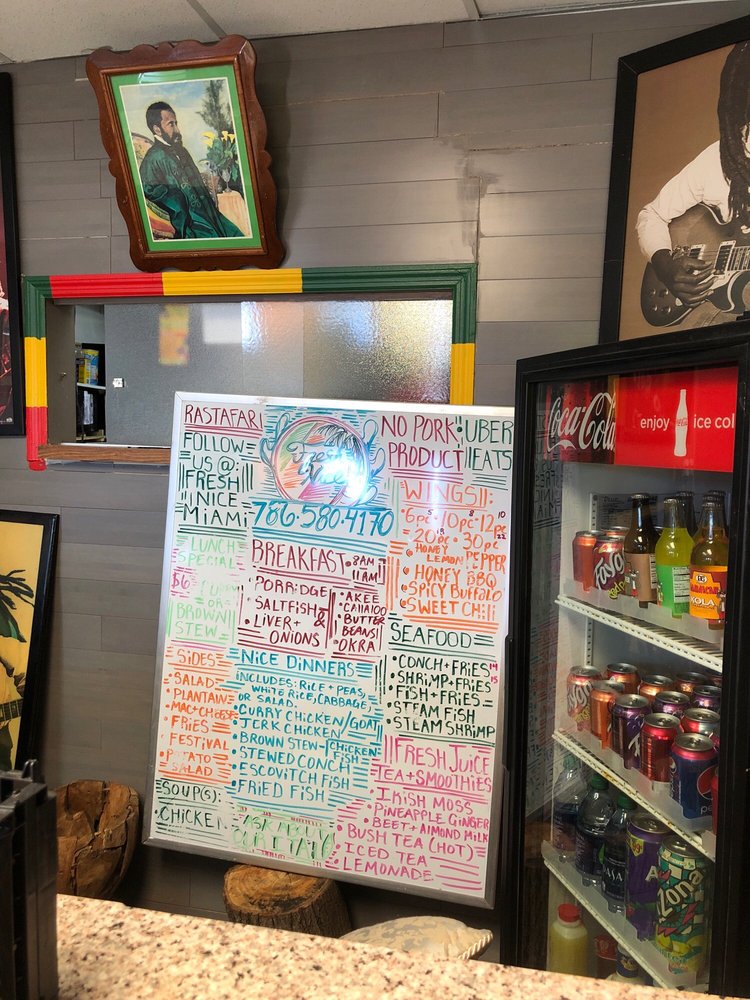 RASTAFARI
FOLLOW
US @
FRESH
NICE
MIAMI
Fresh
Nice
786·580·4170
NO PORK
PRODUCT
UBER
EATS
LUNCH
SPECIAL
$6
OR
BROWN
STEW
BREAKFAST
8AM
11AM
• PORRIDGE
• SALTFISH &
• LIVER +
ONIONS
• AKEE
• CALLALOO
• BUTTER
BEANS
• OKRA
WINGS
6pc · 10pc · 12pc
20pc · 30pc
22
• HONEY
LEMON PEPPER
• HONEY BBQ
• SPICY BUFFALO
• SWEET CHILI
SEAFOOD
• CONCH + FRIES 14
• SHRIMP + FRIES 15
• FISH + FRIES
• STEAM FISH
• STEAM SHRIMP
SIDES
• SALAD
• PLANTAIN
• MAC + CHEESE
• FRIES
• FESTIVAL
• POTATO
SALAD
SOUP(S):
CHICKEN
NICE DINNERS
INCLUDES: RICE + PEAS,
WHITE RICE, CABBAGE,
OR SALAD
• CURRY CHICKEN/GOAT
• JERK CHICKEN
• BROWN STEW - CHICKEN
FISH
• STEWED CONCH
• ESCOVITCH FISH
• FRIED FISH
ASK ABOUT
OUR ITAL
FRESH JUICE
TEA + SMOOTHIES
IRISH MOSS
• PINEAPPLE GINGER
• BEET + ALMOND MILK
• BUSH TEA (HOT)
• ICED TEA
• LEMONADE
Coca-Cola
enjoy
ice col
Faygo
KOLA
Faygo
pe
DASANI
ZONA